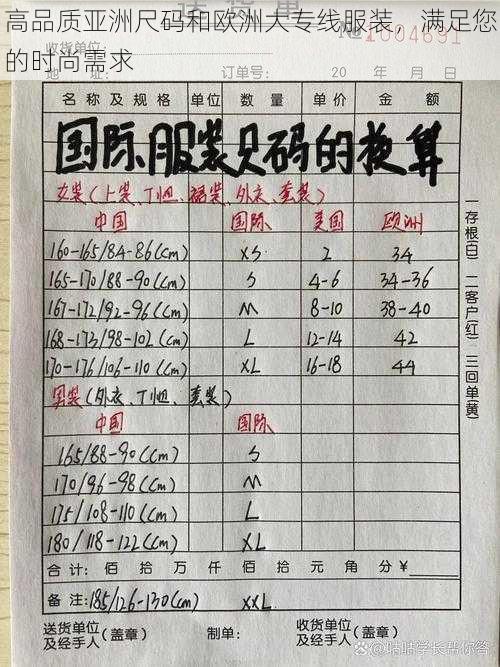 高品质亚洲尺码和欧洲大专线服装，满足您
的时尚需求
送货单
№1004691
地址 订单号: 20 年 月 日
名称及规格 单位 数量 单价 金额
国际服装尺码的换算
女装(上装、T恤、裙装、外衣、套装)
中国 国际 美国 欧洲
160-165/84-86(cm) XS 2 34
165-170/88-90(cm) S 4-6 34-36
167-172/92-96(cm) M 8-10 38-40
168-173/98-102(cm) L 12-14 42
170-176/106-110(cm) XL 16-18 44
男装(外衣、T恤、套装)
中国 国际
165/88-90(cm) S
170/96-98(cm) M
175/108-110(cm) L
180/118-122(cm) XL
合计: 佰 拾 万 仟 佰 拾 元 角 分 ¥
备注: 185/126-130(cm) XXL
送货单位及经手人(盖章) 制单: 收货单位及经手人(盖章)
一存根(白) 二客户(红) 三回单(黄)
@咕咕学长帮你答